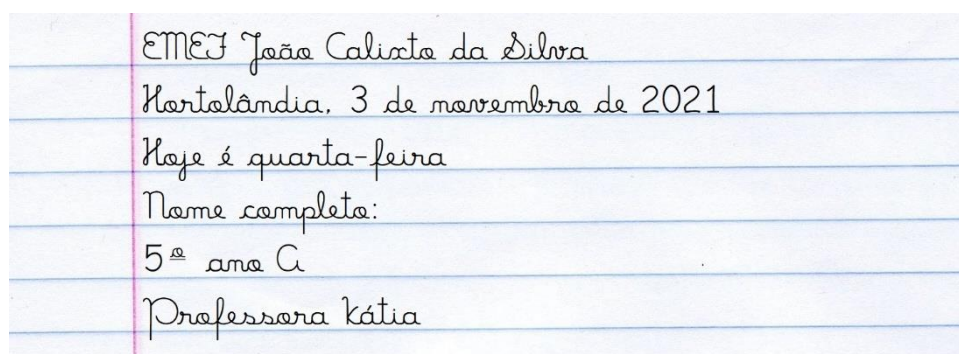 EMEF João Calixto da Silva
Hortolândia, 3 de novembro de 2021
Hoje é quarta-feira
Nome completo:
5º ano A
Professora Kátia